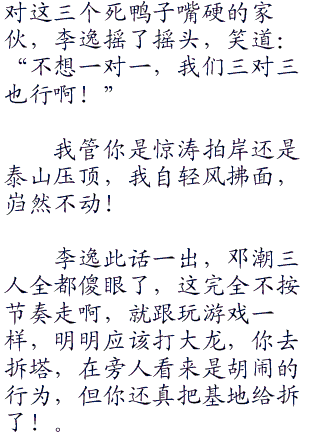 对这三个死鸭子嘴硬的家
伙，李逸摇了摇头，笑道：
“不想一对一，我们三对三
也行啊！”
我管你是惊涛拍岸还是
泰山压顶，我自轻风拂面，
岿然不动！
李逸此话一出，邓潮三
人全都傻眼了，这完全不按
节奏走啊，就跟玩游戏一
样，明明应该打大龙，你去
拆塔，在旁人看来是胡闹的
行为，但你还真把基地给拆
了！。